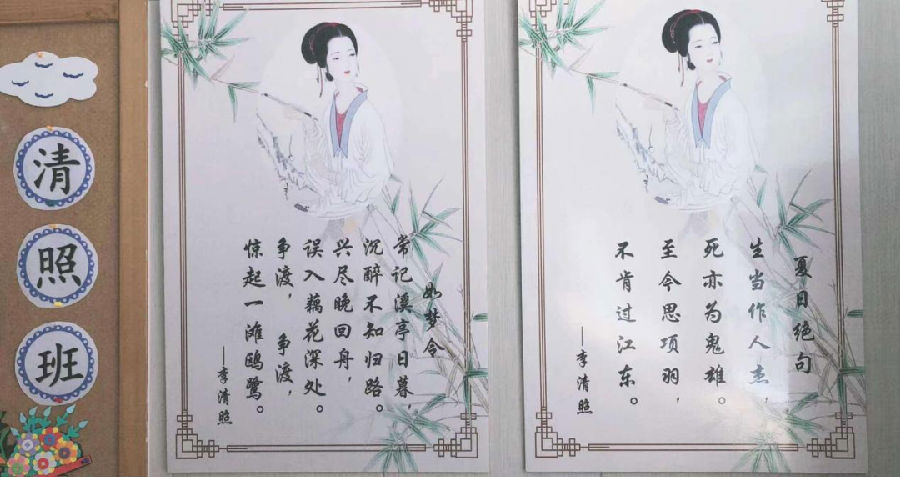 清照班
如梦令
常记溪亭日暮，
沉醉不知归路。
兴尽晚回舟，
误入藕花深处。
争渡，争渡，
惊起一滩鸥鹭。
——李清照
夏日绝句
生当作人杰，
死亦为鬼雄。
至今思项羽，
不肯过江东。
——李清照